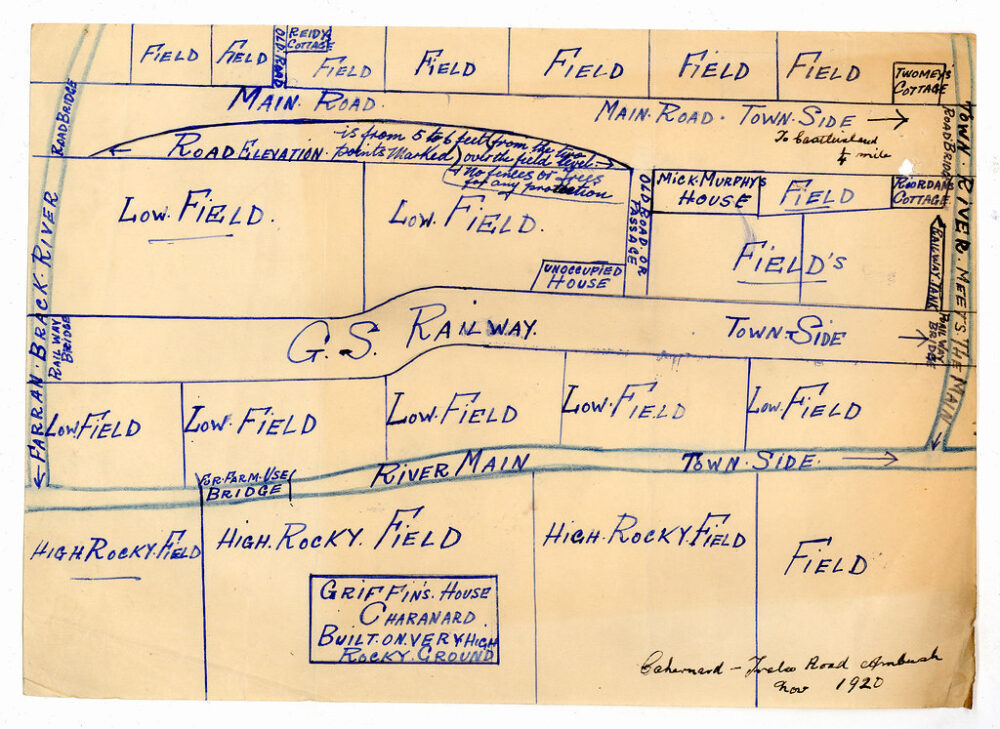 FIELD
FIELD
OLD. ROAD
REIDY'S
COTTAGE
FIELD
FIELD
FIELD
FIELD
FIELD
TWOMEY'S
COTTAGE
ROAD BRIDGE
MAIN. ROAD.
MAIN. ROAD. TOWN. SIDE
To Castleisland
¼ mile
ROAD BRIDGE
TOWN. RIVER. MEETS. THE MAIN
ROAD ELEVATION.
is from 5 to 6 feet from the two
points Marked) over the field level.
no fences or trees
for any protection
LOW. FIELD.
LOW. FIELD.
OLD. ROAD. OR
PASSAGE
MICK. MURPHY'S
HOUSE
FIELD
COTTAGE
FIELD'S
RAILWAY TANK
UNOCCUPIED
HOUSE
FARRAN. BRACK. RIVER
RAILWAY
BRIDGE
G. S. RAILWAY.
TOWN-SIDE
RAILWAY
BRIDGE
LOW FIELD
LOW. FIELD
LOW. FIELD
LOW. FIELD
LOW. FIELD
FOR. FARM. USE
BRIDGE
RIVER MAIN
TOWN. SIDE.
HIGH. ROCKY. FIELD
HIGH. ROCKY. FIELD
HIGH. ROCKY. FIELD
FIELD
GRIFFIN'S. HOUSE
CHARANARD
BUILT. ON. VERY. HIGH
ROCKY. GROUND
Cahernard - Tralee Road Ambush
Nov 1920